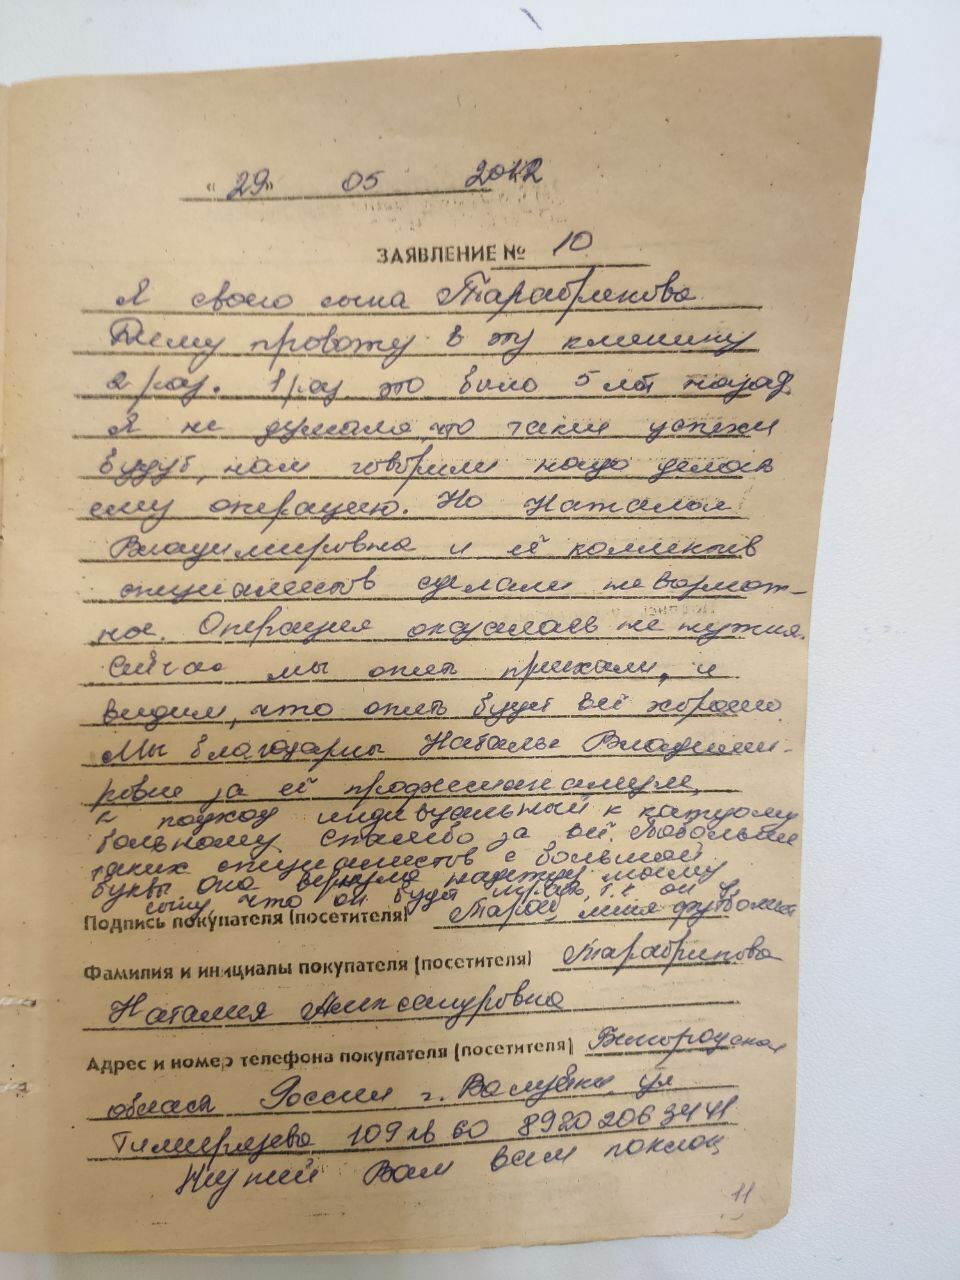 «29» 05 2012
ЗАЯВЛЕНИЕ № 10
Я своего сына Тарабрикова
Диму провожу в эту клинику
2 раз. 1 раз это было 5 лет назад
Я не думала, что такие успехи
будут, нам говорили надо делать
ему операцию. Но Наталья
Владимировна и её коллектив
специалистов сделали невозмож-
ное. Операция оказалась не нужна.
Сейчас мы опять приехали, и
видим, что опять будет всё хорошо
Мы благодарны Наталье Владими-
ровне за её профессионализм,
подход индивидуальный к каждому
больному. Спасибо за всё. Побольше
таких специалистов с большой
буквы Она вернула надежду моему
сыну, что он будет играть т.к он у
Подпись покупателя (посетителя) Тараб меня футболист
Фамилия и инициалы покупателя (посетителя) Тарабрикова
Наталия Александровна
Адрес и номер телефона покупателя (посетителя) Белгородская
область Россия г. Валуйки ул
Тимирязева 109 кв 60 8920 206 34 41
Низкий Вам всем поклон
11